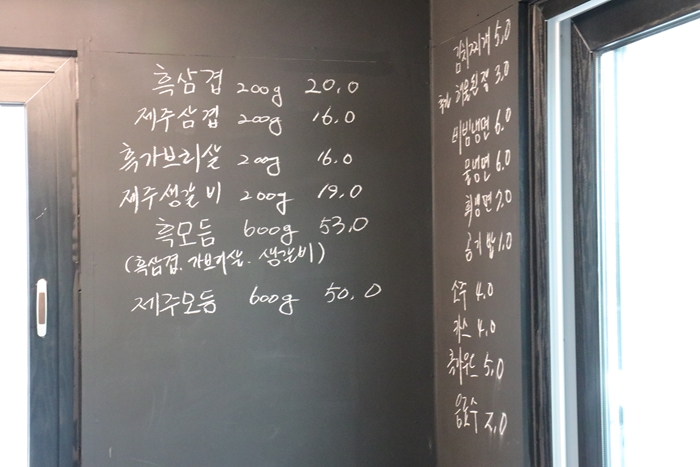 흑삼겹 200g 20.0
제주삼겹 200g 16.0
흑가브리살 200g 16.0
제주생갈비 200g 19.0
흑모듬 600g 53.0
(흑삼겹. 가브리살. 생갈비)
제주모듬 600g 50.0
김치찌개 5.0
된 3.0
비빔냉면 6.0
물냉면 6.0
회냉면 7.0
공기밥 1.0
소주 4.0
카스 4.0
5.0
음료수 2.0